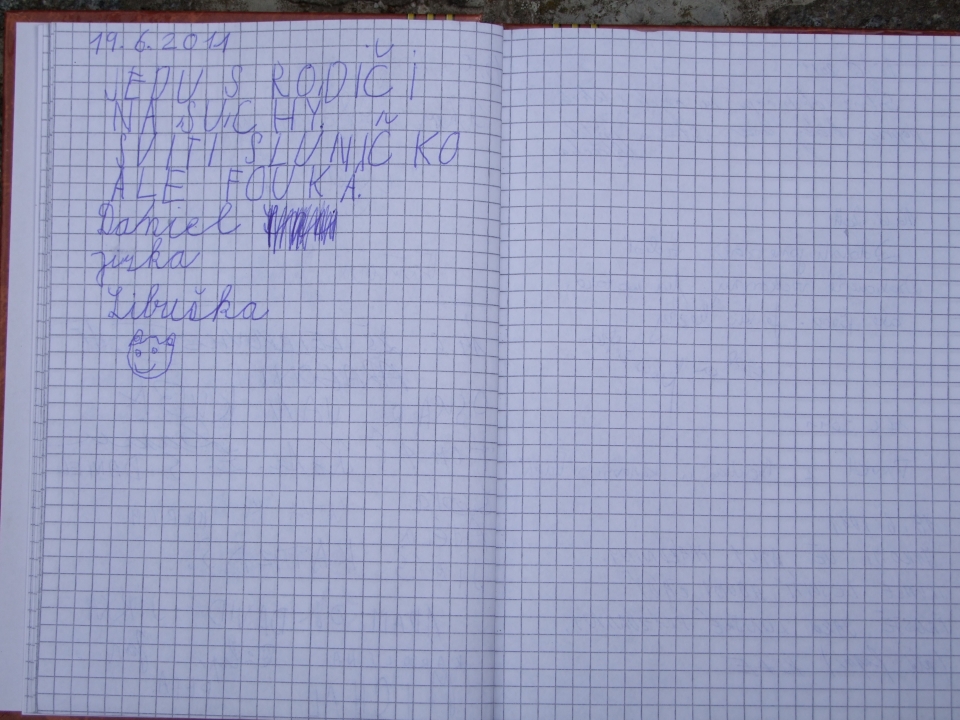 19.6.2011
JEDU S RODIČI
NA SUCHY.
SVITI SLUNIČKO
ALE FOUKA.
Daniel
jirka
Libuška